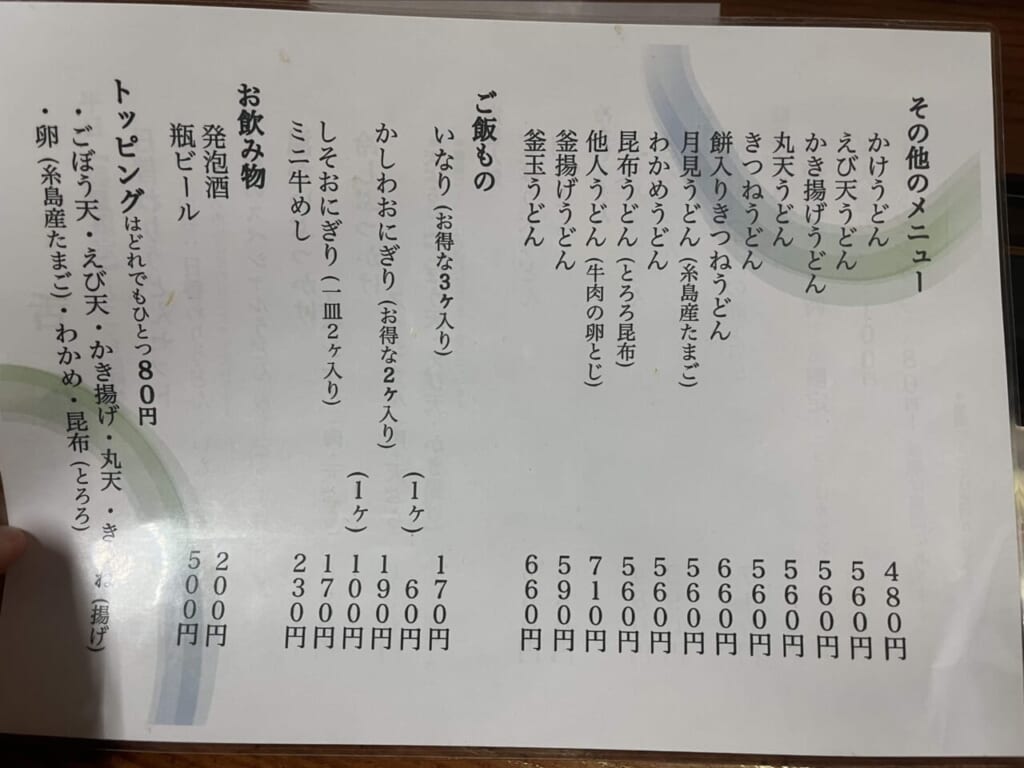 その他のメニュー
かけうどん 480円
えび天うどん 560円
かき揚げうどん 560円
丸天うどん 560円
きつねうどん 560円
餅入りきつねうどん 660円
月見うどん(糸島産たまご) 560円
わかめうどん 560円
昆布うどん(とろろ昆布) 560円
他人うどん(牛肉の卵とじ) 710円
釜揚げうどん 590円
釜玉うどん 660円
ご飯もの
いなり(お得な3ヶ入り) 170円
(1ヶ) 60円
かしわおにぎり(お得な2ヶ入り) 190円
(1ヶ) 100円
しそおにぎり(一皿2ヶ入り) 170円
ミニ牛めし 230円
お飲み物
発泡酒 200円
瓶ビール 500円
トッピングはどれでもひとつ80円
・ごぼう天・えび天・かき揚げ・丸天・き ね(揚げ)
・卵(糸島産たまご)・わかめ・昆布(とろろ)